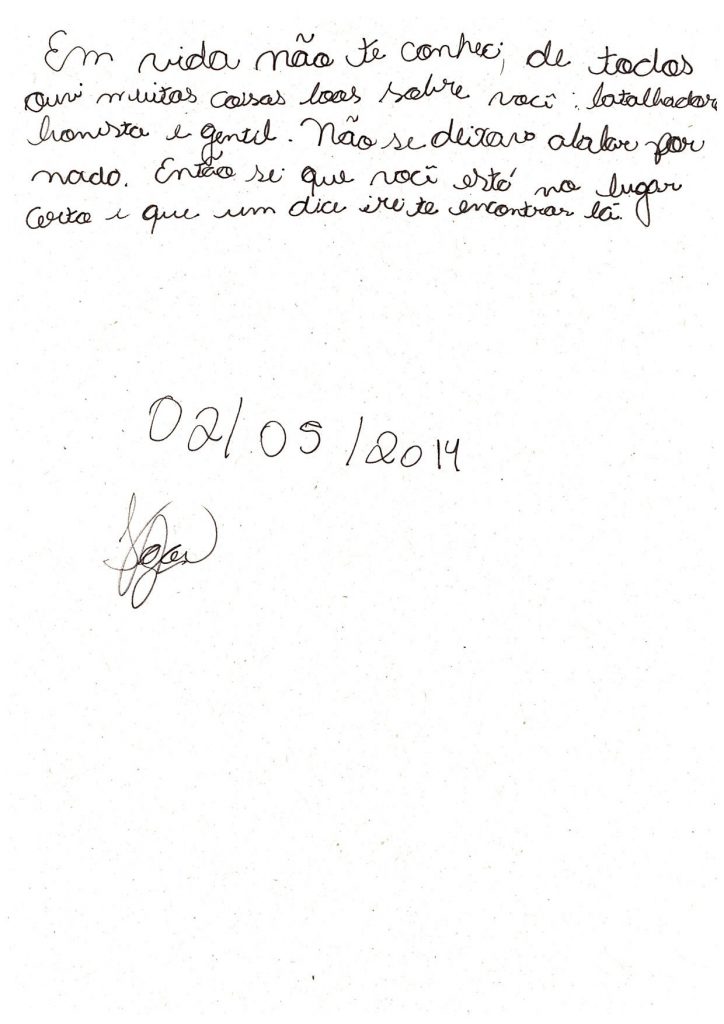 Em vida não te conheci, de todos
ouvi muitas coisas boas sobre você: batalhador
honesta e gentil. Não se deixava abalar por
nada. Então sei que você está no lugar
certo e que um dia irei te encontrar lá.
02/05/2014